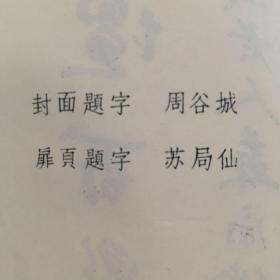 封面題字 周谷城
扉頁題字 苏局仙